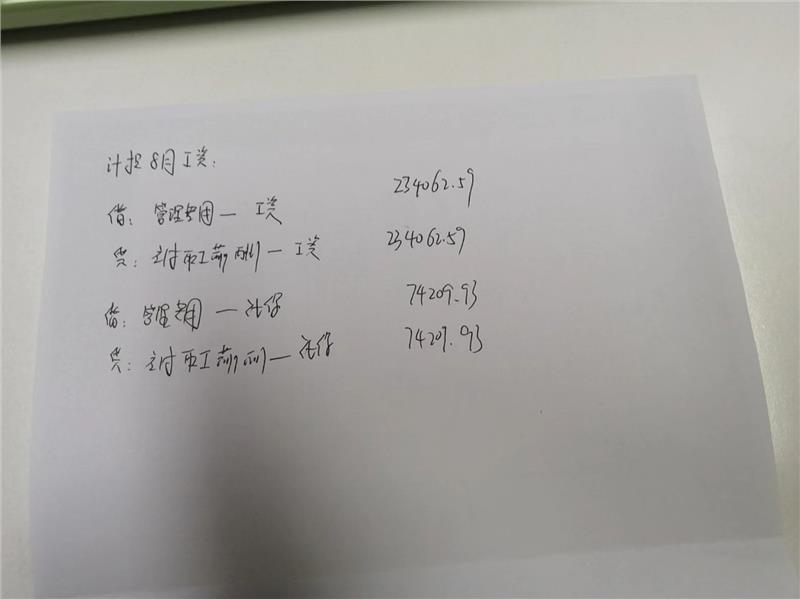 计提8月工资:
借: 管理费用— 工资 234062.59
贷: 应付职工薪酬— 工资 234062.59
借: 管理费用 —社保 74209.93
贷: 应付职工薪酬— 社保 74209.93